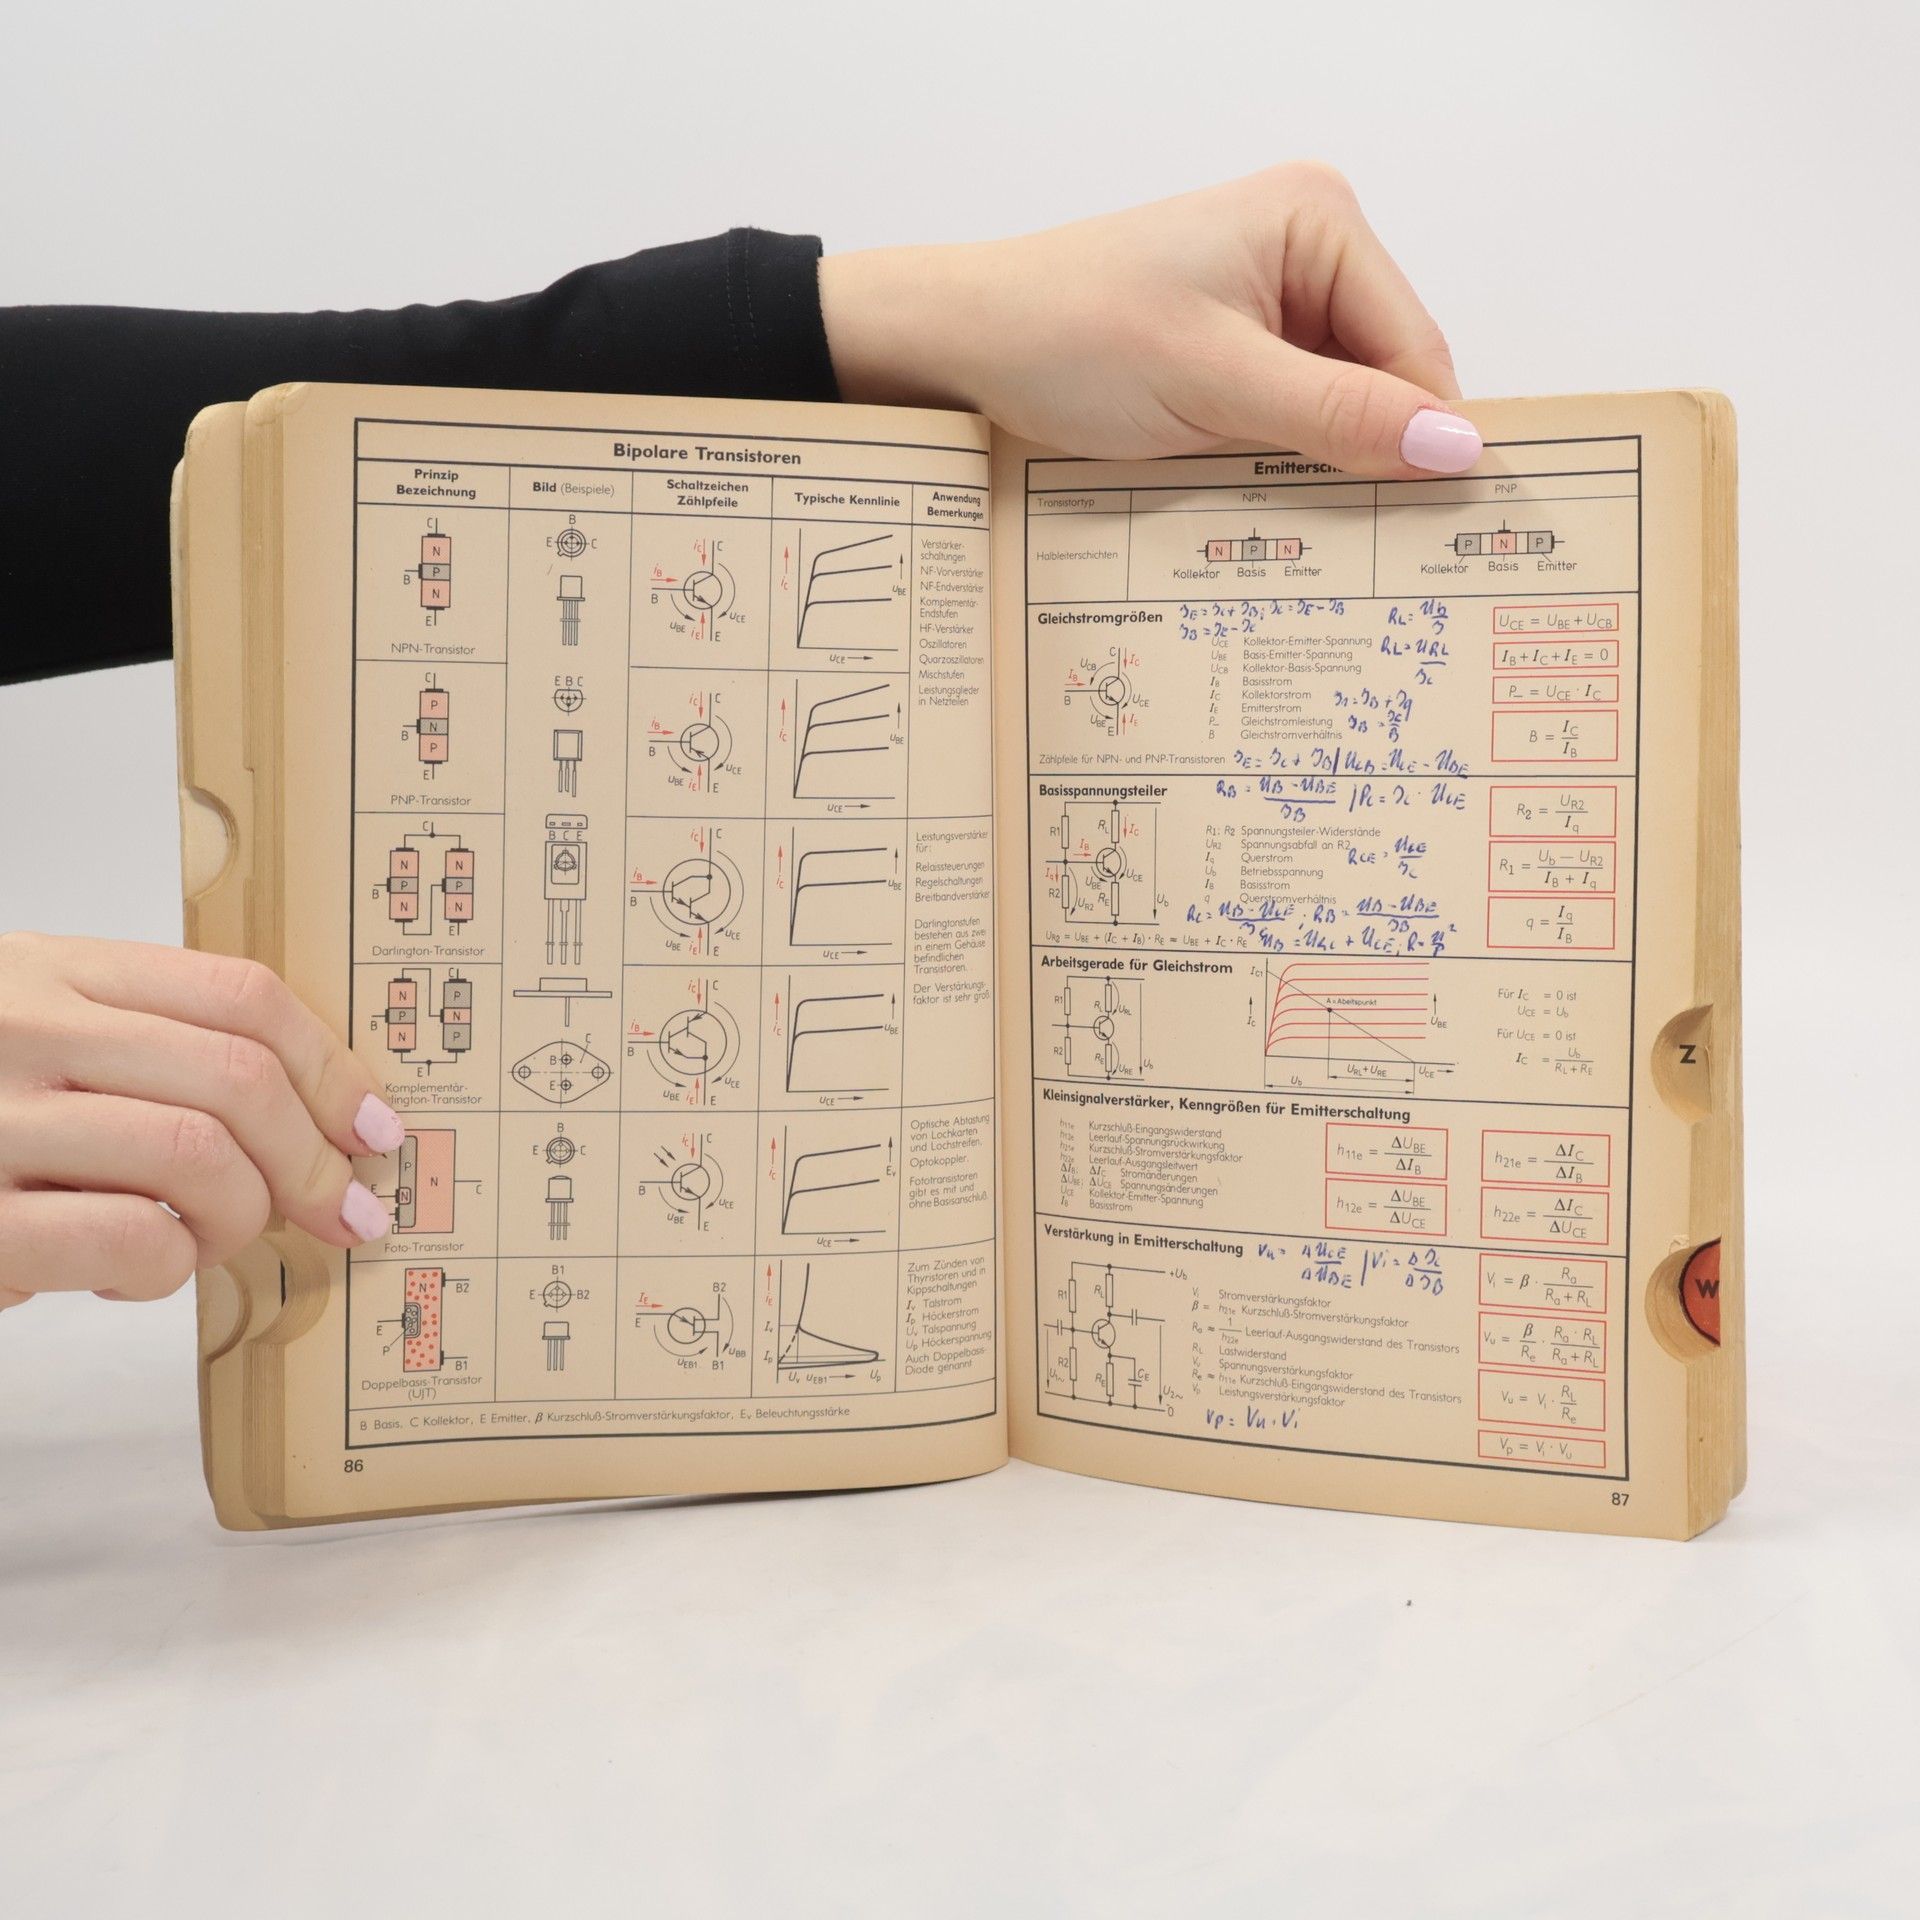 Bipolare Transistoren
Prinzip
Bezeichnung
Bild (Beispiele)
Schaltzeichen
Zählpfeile
Typische Kennlinie
Anwendung
Bemerkungen
C
N
P
N
B
E
NPN-Transistor
B
E C
iC C
iB
B
UCE
UBE iE E
iC
UBE
UCE
Verstärker-
schaltungen
NF-Vorverstärker
NF-Endverstärker
Komplementär-
Endstufen
HF-Verstärker
Oszillatoren
Quarzoszillatoren
Mischstufen
Leistungsglieder
in Netzteilen
C
P
N
P
B
E
PNP-Transistor
E B C
iC C
iB
B
UCE
UBE iE E
iC
UBE
UCE
C
N N
B P P
N N
E
Darlington-Transistor
B C E
iC C
iB
B
UCE
UBE iE E
iC
UBE
UCE
Leistungsverstärker
für:
Relaissteuerungen
Regelschaltungen
Breitbandverstärker
Darlingtonstufen
bestehen aus zwei
in einem Gehäuse
befindlichen
Transistoren.
Der Verstärkungs-
faktor ist sehr groß
C
N P
B P N
N P
E
Komplementär-
lington-Transistor
C
B
E
iC C
iB
B
UCE
UBE iE E
iC
UBE
UCE
P
N
E N C
Foto-Transistor
B
E C
iC C
B
UCE
UBE E
iC
Ev
UCE
Optische Abtastung
von Lochkarten
und Lochstreifen.
Optokoppler.
Fototransistoren
gibt es mit und
ohne Basisanschluß.
N B2
E
P
B1
Doppelbasis-Transistor
(UJT)
B1
E B2
IE B2
E
UBB
UEB1 B1
iE
Iv
Ip
Uv UEB1 Up
Zum Zünden von
Thyristoren und in
Kippschaltungen
Iv Talstrom
Ip Höckerstrom
Uv Talspannung
Up Höckerspannung
Auch Doppelbasis-
Diode genannt
B Basis, C Kollektor, E Emitter, β Kurzschluß-Stromverstärkungsfaktor, Ev Beleuchtungsstärke
86
Emittersch
Transistortyp NPN PNP
Halbleiterschichten
N P N
Kollektor Basis Emitter
P N P
Kollektor Basis Emitter
Gleichstromgrößen
IE = IC + IB; IC = IE - IB
IB = IE - IC
RL = Ub/I
RL = URL/IC
UCE Kollektor-Emitter-Spannung
UBE Basis-Emitter-Spannung
UCB Kollektor-Basis-Spannung
IB Basisstrom
IC Kollektorstrom
IE Emitterstrom
P= Gleichstromleistung
B Gleichstromverhältnis
I1 = IB + Iq
IB = IC/B
UCE = UBE + UCB
IB + IC + IE = 0
P= = UCE · IC
B = IC/IB
Zählpfeile für NPN- und PNP-Transistoren
IE = IC + IB | UCB = UCE - UBE
Basisspannungsteiler
RB = UB - UBE/IB | PC = IC · UCE
R1; R2 Spannungsteiler-Widerstände
UR2 Spannungsabfall an R2
Iq Querstrom
Ub Betriebsspannung
IB Basisstrom
q Querstromverhältnis
RCE = UCE/IC
RC = UB - UCE/IC; RB = UB - UBE/IB
UR2 = UBE + (IC + IB) · RE ≈ UBE + IC · RE
UB = URC + UCE; R = U²/P
R2 = UR2/Iq
R1 = Ub — UR2/IB + Iq
q = Iq/IB
Arbeitsgerade für Gleichstrom
R1 RL URL
R2 RE URE Ub
IC1
IC
A = Abeitspunkt
UBE
URL + URE UCE
Ub
Für IC = 0 ist
UCE = Ub
Für UCE = 0 ist
IC = Ub/RL + RE
Kleinsignalverstärker, Kenngrößen für Emitterschaltung
h11e Kurzschluß-Eingangswiderstand
h12e Leerlauf-Spannungsrückwirkung
h21e Kurzschluß-Stromverstärkungsfaktor
h22e Leerlauf-Ausgangsleitwert
ΔIB; ΔIC Stromänderungen
ΔUBE; ΔUCE Spannungsänderungen
UCE Kollektor-Emitter-Spannung
IB Basisstrom
h11e = ΔUBE/ΔIB
h21e = ΔIC/ΔIB
h12e = ΔUBE/ΔUCE
h22e = ΔIC/ΔUCE
Verstärkung in Emitterschaltung
Vu = ΔUCE/ΔUBE | Vi = ΔIC/ΔIB
+Ub
R1 RL
R2 RE CE
U1~ U2~
0
Vi Stromverstärkungsfaktor
β = h21e Kurzschluß-Stromverstärkungsfaktor
Ra ≈ 1/h22e Leerlauf-Ausgangswiderstand des Transistors
RL Lastwiderstand
Vu Spannungsverstärkungsfaktor
Re ≈ h11e Kurzschluß-Eingangswiderstand des Transistors
Vp Leistungsverstärkungsfaktor
Vp = Vu · Vi
Vi = β · Ra/Ra + RL
Vu = β/Re · Ra · RL/Ra + RL
Vu = Vi · RL/Re
Vp = Vi · Vu
87
Z
W